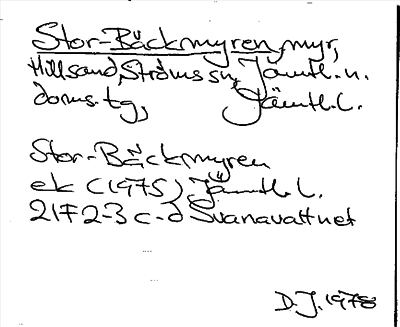 Stor-Bäckmyren, myr,
Hillsand, Ströms sn, Jämtl. n.
doms. tg, Jämtl. l.
Stor-Bäckmyren
ek (1975) Jämtl. l.
21F 2-3 c-d Svanavattnet
D.J. 1978